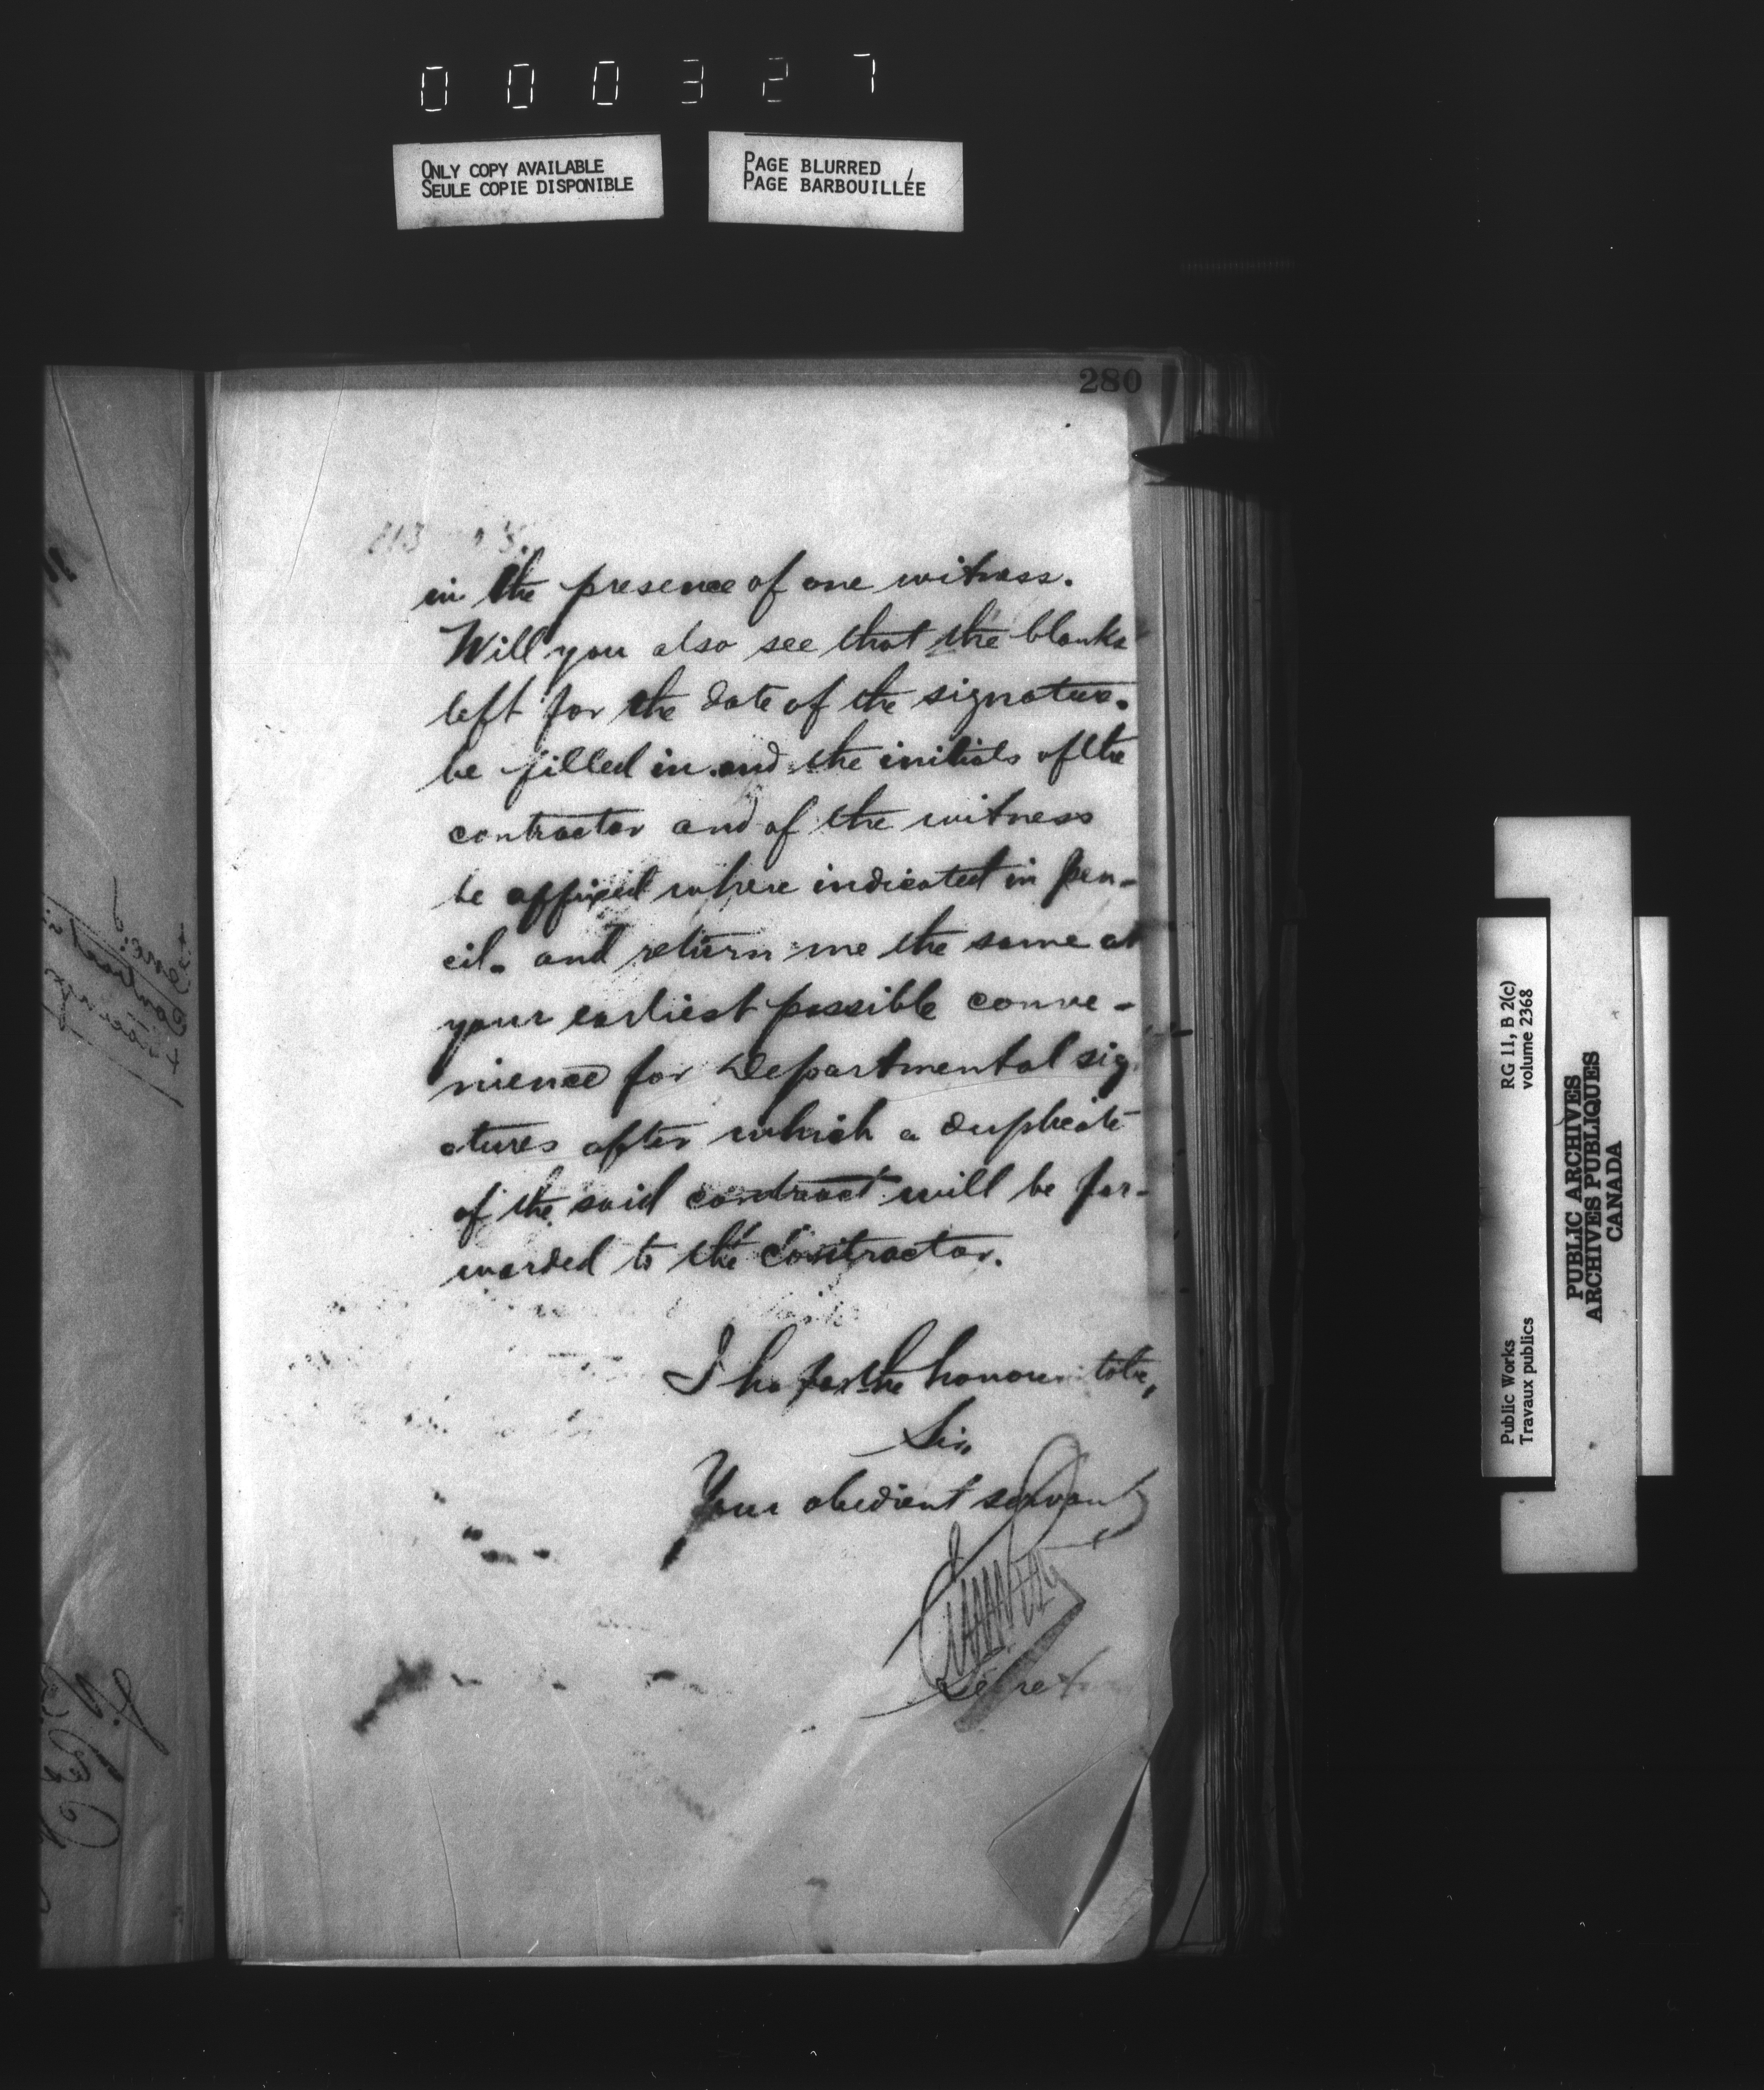 000327
ONLY COPY AVAILABLE
SEULE COPIE DISPONIBLE
PAGE BLURRED
PAGE BARBOUILLÉE
280
in the presence of one witness.
Will you also see that the blanks
left for the date of the signature.
be filled in and the initials of the
contractor and of the witness
be affixed where indicated in pen-
cil. and return me the same at
your earliest possible conve-
nience for Departmental sig
atures after which a duplicate
of the said contract will be for-
warded to the Contractor.
I have the honour to be,
Sir,
Your obedient servant
RG 11, B 2(c)
volume 2368
Public Works
Travaux publics
PUBLIC ARCHIVES
ARCHIVES PUBLIQUES
CANADA